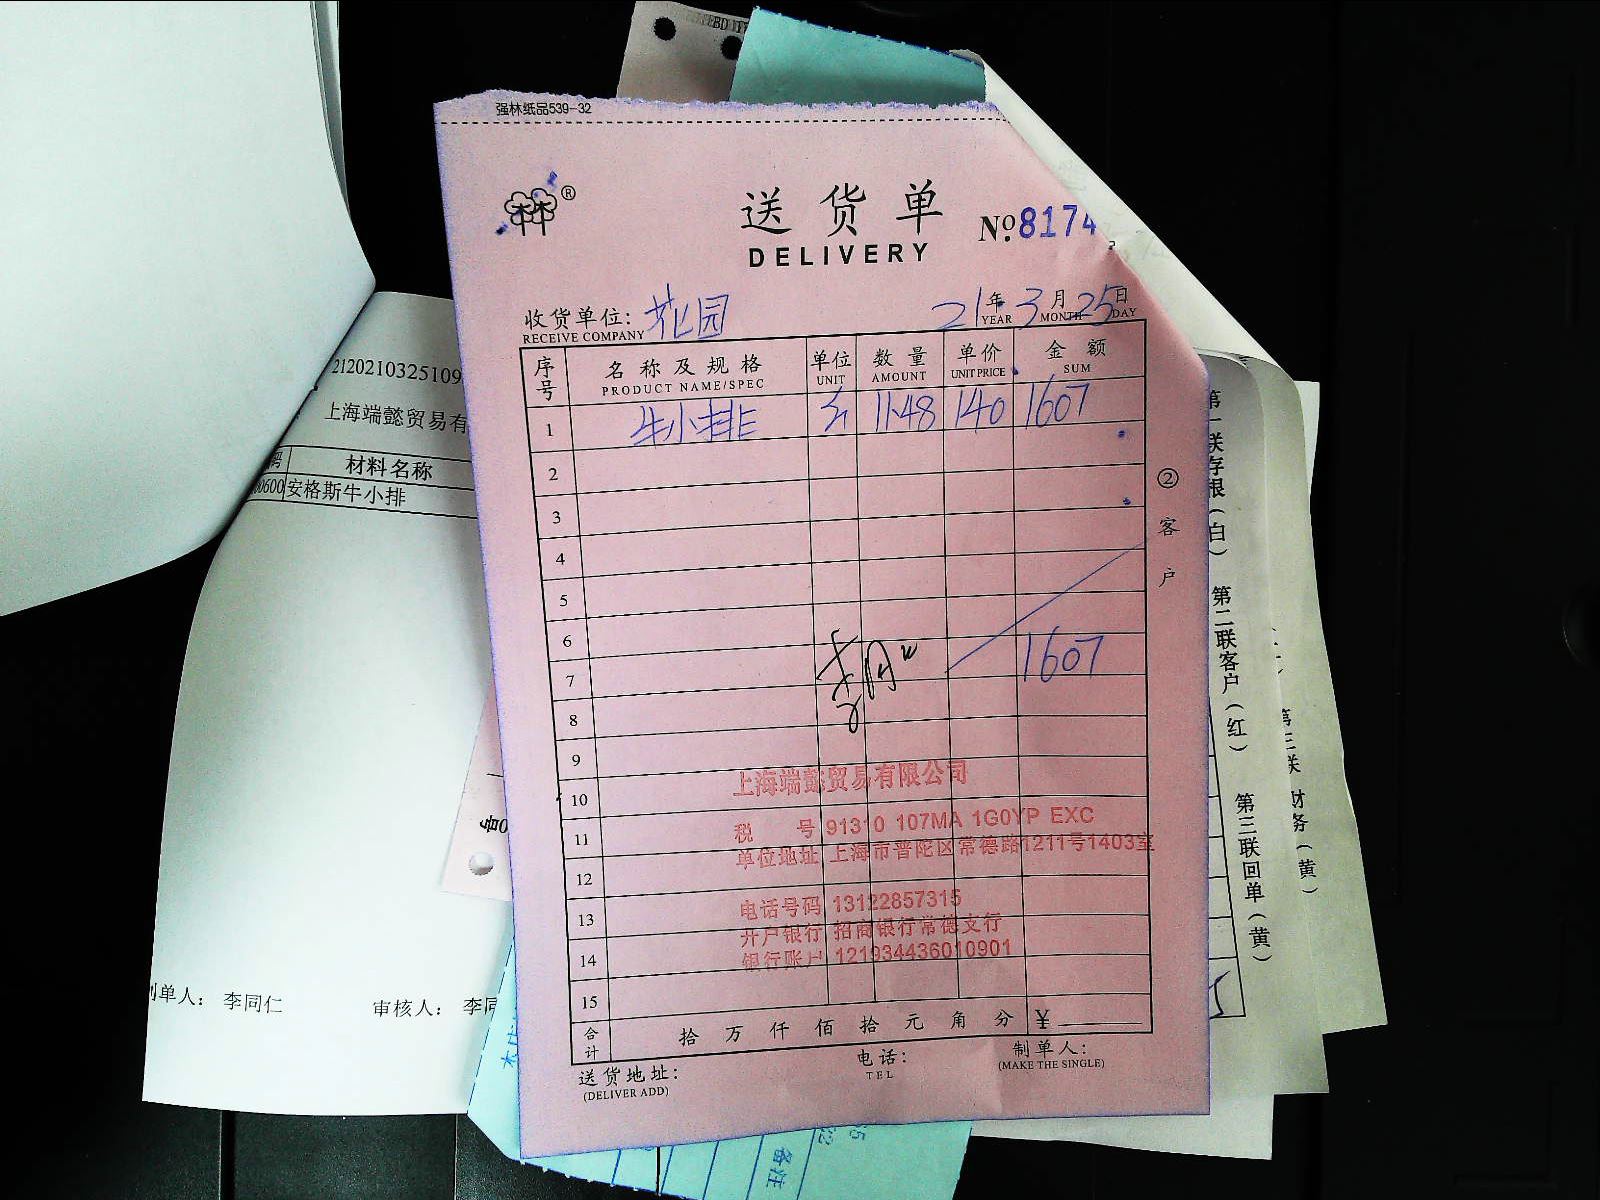 强林纸品539-32
送货单
DELIVERY
№ 8174
收货单位: 花园
RECEIVE COMPANY
21年 3月 25日
YEAR MONTH DAY
序号 名称及规格 单位 数量 单价 金额
PRODUCT NAME/SPEC UNIT AMOUNT UNIT PRICE SUM
1 牛小排 11.48 140 1607
2
3
4
5
6
7 1607
8
9
10
11
12
13
14
15
上海端懿贸易有限公司
税 号 91310 107MA 1G0YP EXC
单位地址 上海市普陀区常德路1211号1403室
电话号码 13122857315
开户银行 招商银行常德支行
银行账户 121934436010901
合计 拾万仟佰拾元角分 ¥
送货地址:
(DELIVER ADD)
电话:
TEL
制单人:
(MAKE THE SINGLE)
② 客户
2120210325109
上海端懿贸易有
材料名称
安格斯牛小排
制单人: 李同仁
审核人: 李同
第一联存根(白) 第二联客户(红) 第三联回单(黄)
第三联 财务(黄)
备注